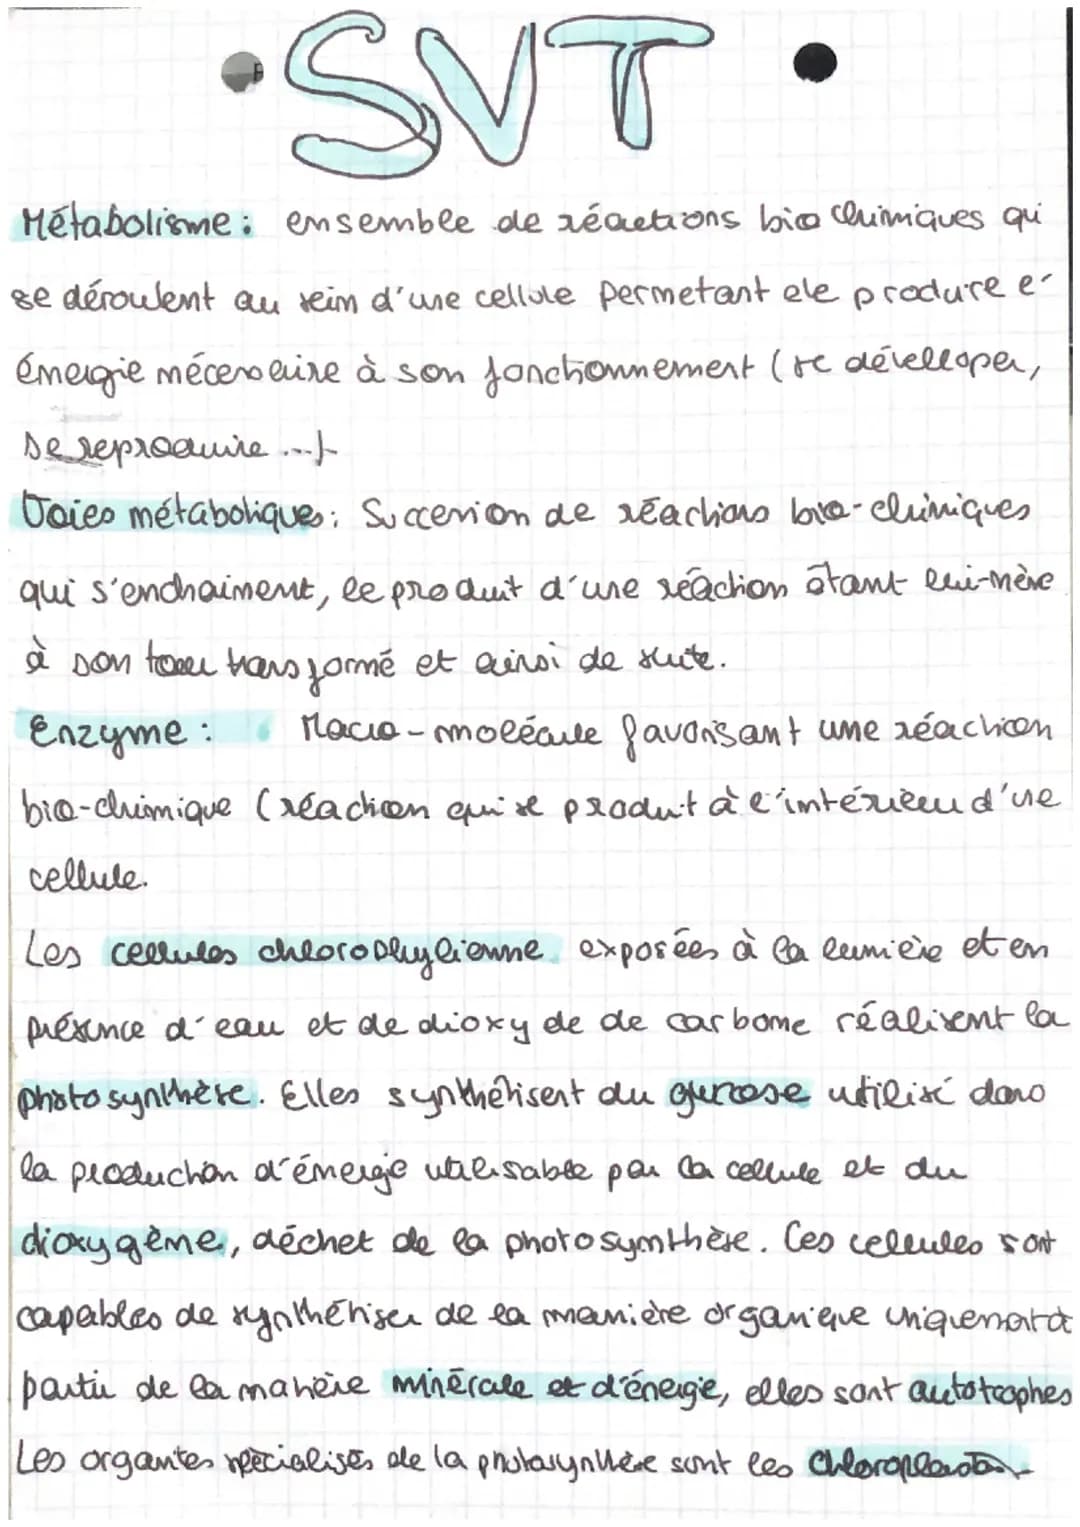 SVT
Métabolisme : ensemble de réactions bio chimiques qui
se déroulent au sein d'une cellule permetant de produire l'
énergie nécessaire à son fonctionnement (se développer,
se reproduire ...)
Voies métaboliques : Succession de réactions bio-chimiques
qui s'enchainent, le produit d'une réaction étant lui-même
à son tour transformé et ainsi de suite.
Enzyme : Macro-molécule favorisant une réaction
bio-chimique (réaction qui se produit à l'intérieur d'une
cellule.
Les cellules chlorophylienne exposées à la lumière et en
présence d'eau et de dioxyde de carbone réalisent la
photosynthèse. Elles synthétisent du glucose utilisé dans
la production d'énergie utilisable par la cellule et du
dioxygène, déchet de la photosynthèse. Ces cellules sont
capables de synthétiser de la manière organique uniquement à
partir de la matière minérale et d'énergie, elles sont autotrophes
Les organites spécialisés de la photosynthèse sont les chloroplastes.